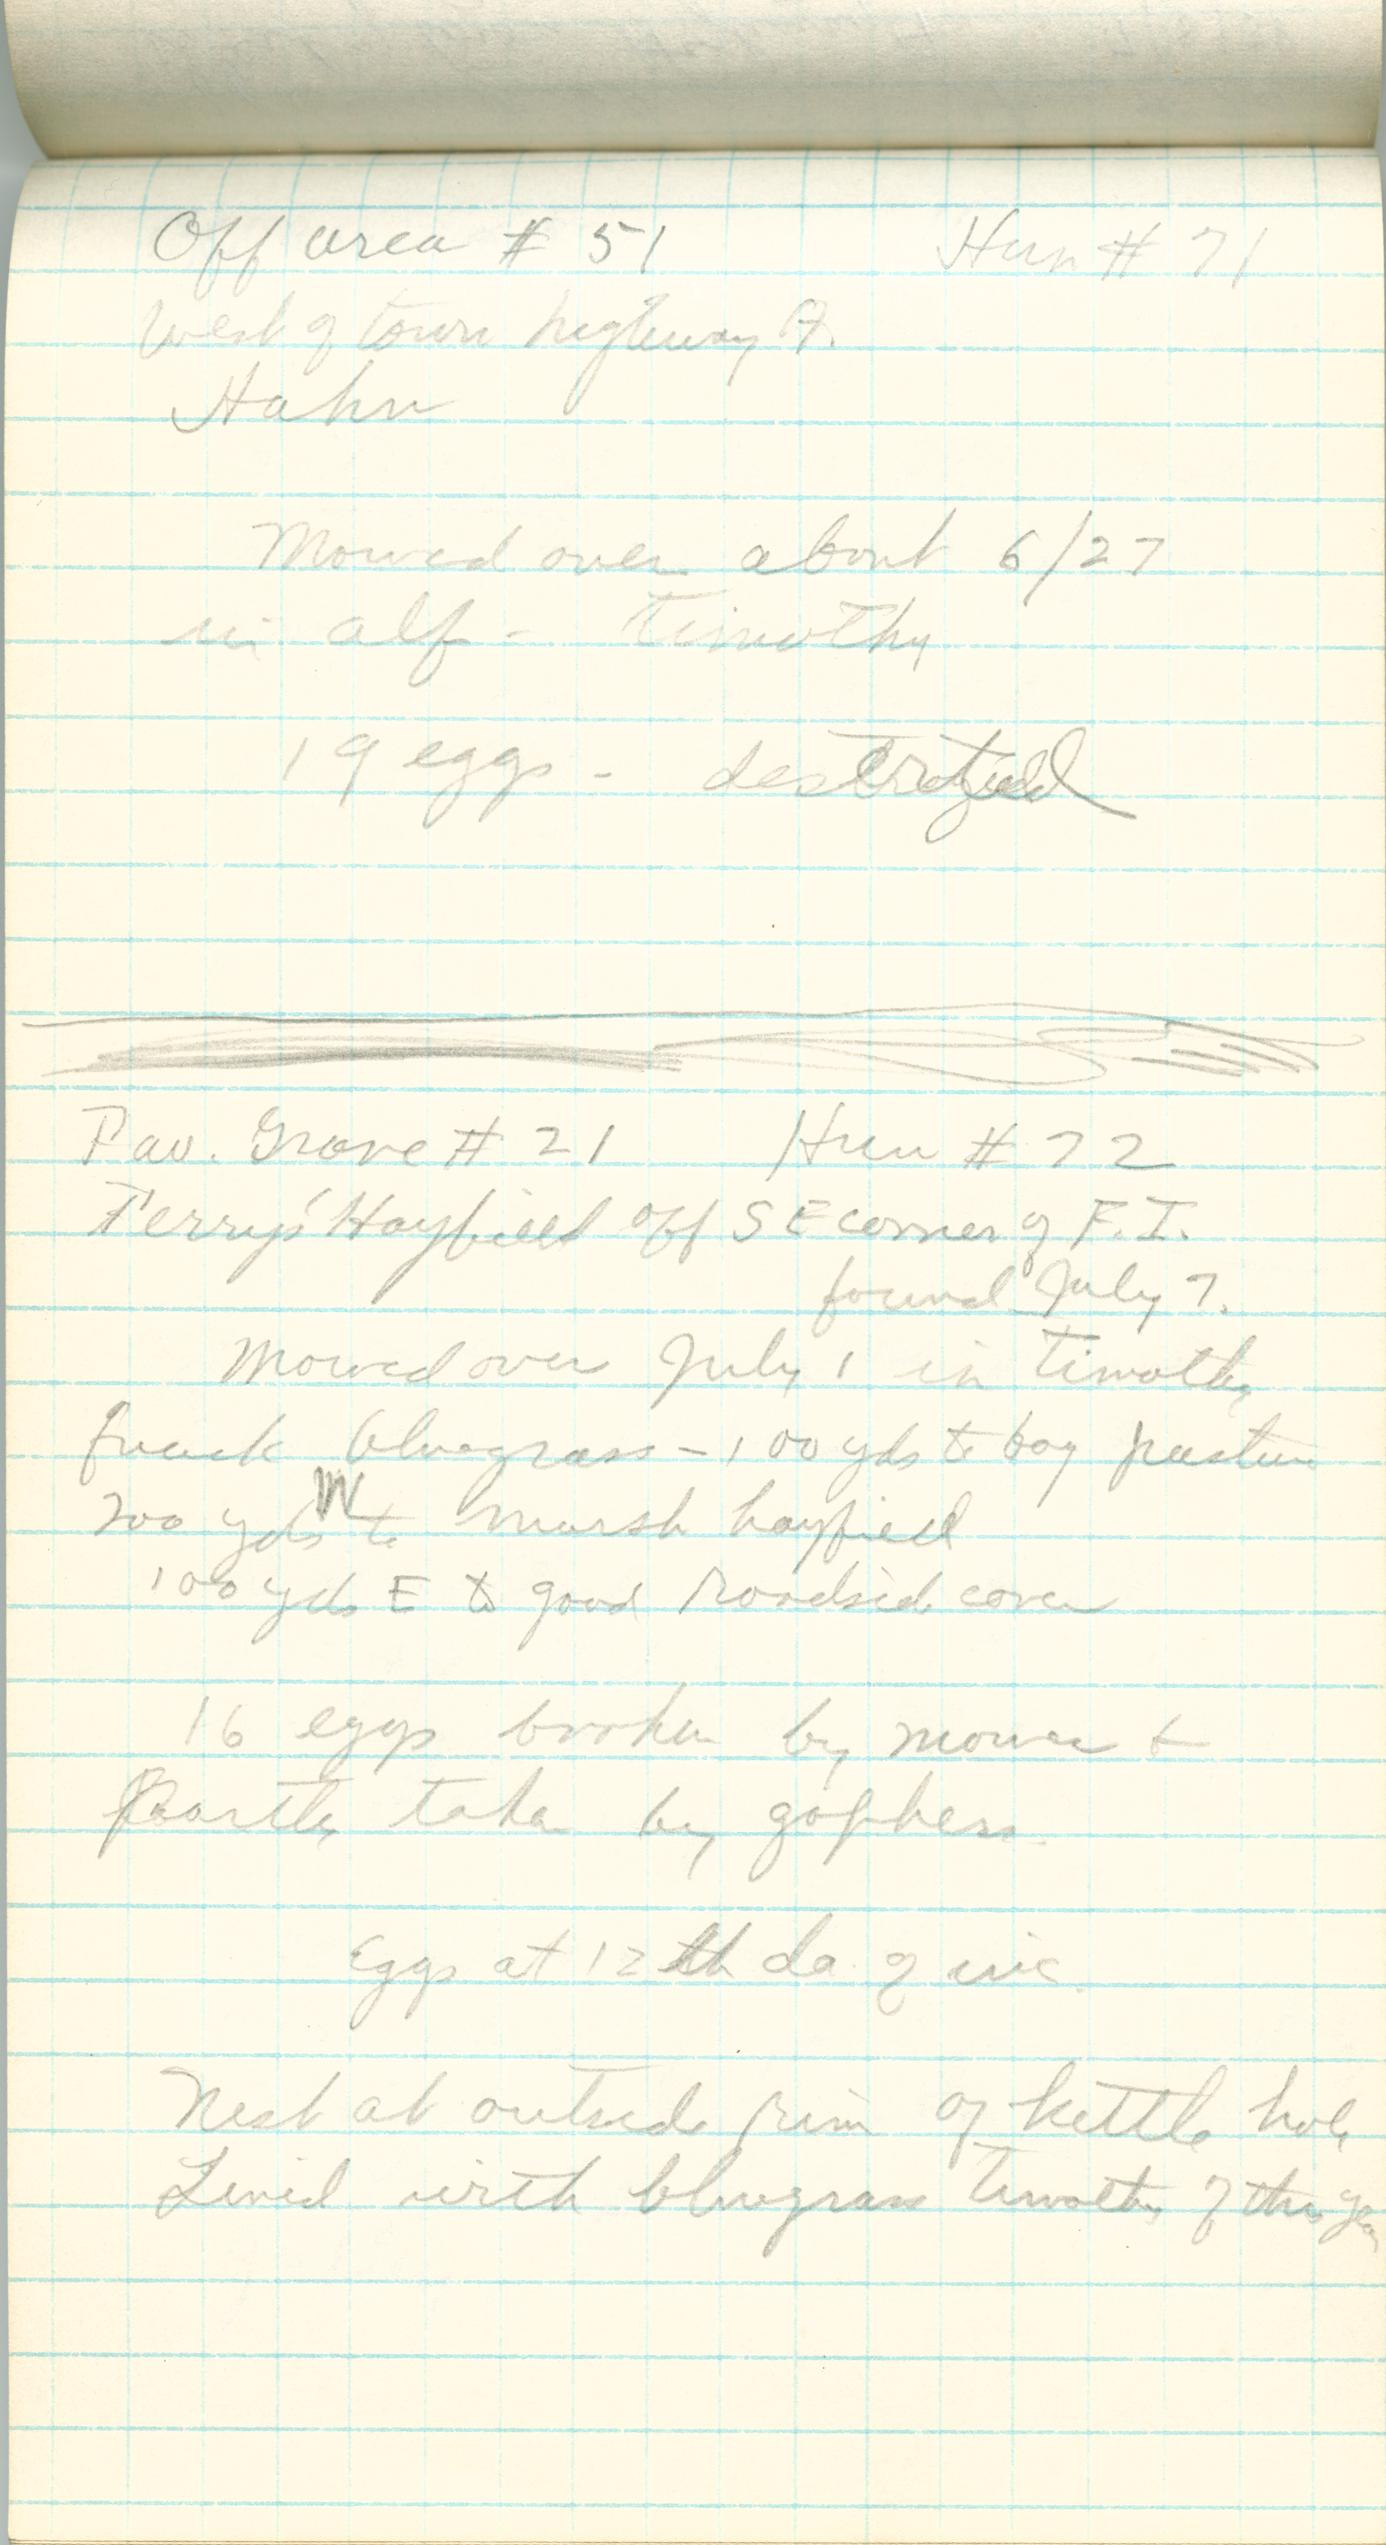 Off area # 51 Hun # 71
West of town highway A.
Hahn
Mowed over about 6/27
in alf - timothy
19 eggs - destroyed
Fav. Grove # 21 Hun # 72
Terry's Hayfield off SE corner of F.I.
found July 7.
Mowed over July 1 in timothy
quack bluegrass - 100 yds to bog pasture
200 yds W to marsh hayfield
100 yds E to good roadside cover
16 eggs broken by mower &
partly taken by gophers.
Eggs at 12th da. of inc.
Nest at outside rim of kettle hole
Lined with bluegrass timothy of this year